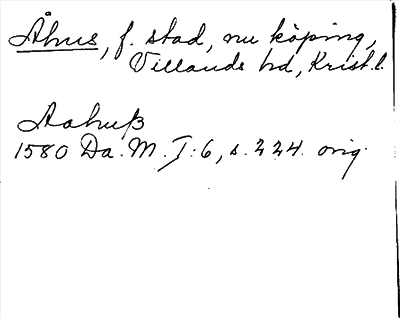 Åhus, f. stad, nu köping,
Villands hd, Krist. l.
Aahuß
1580 Da. M. I:6, s. 224. orig.